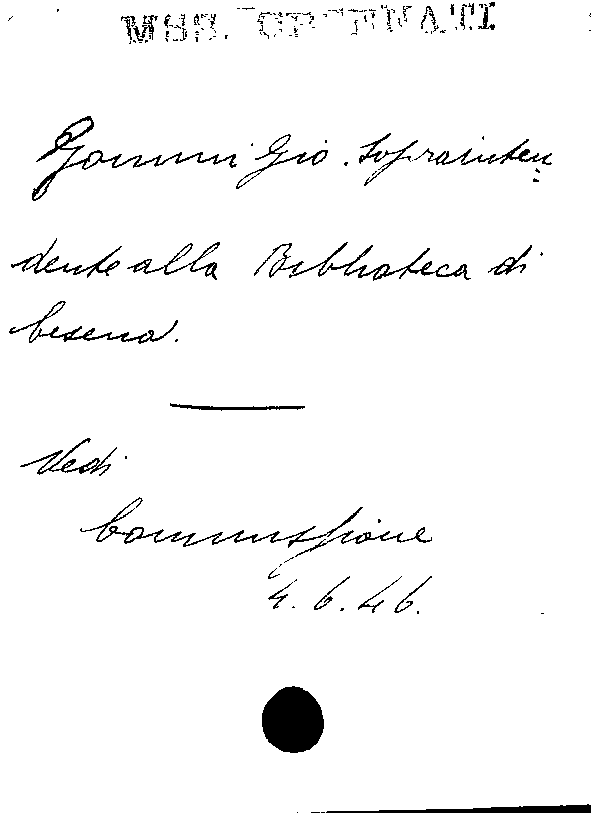 MSS. ORDINATI
Gommi Gio. Soprainten
dente alla Biblioteca di
Cesena.
Vedi
Commissione
4. 6. 46.